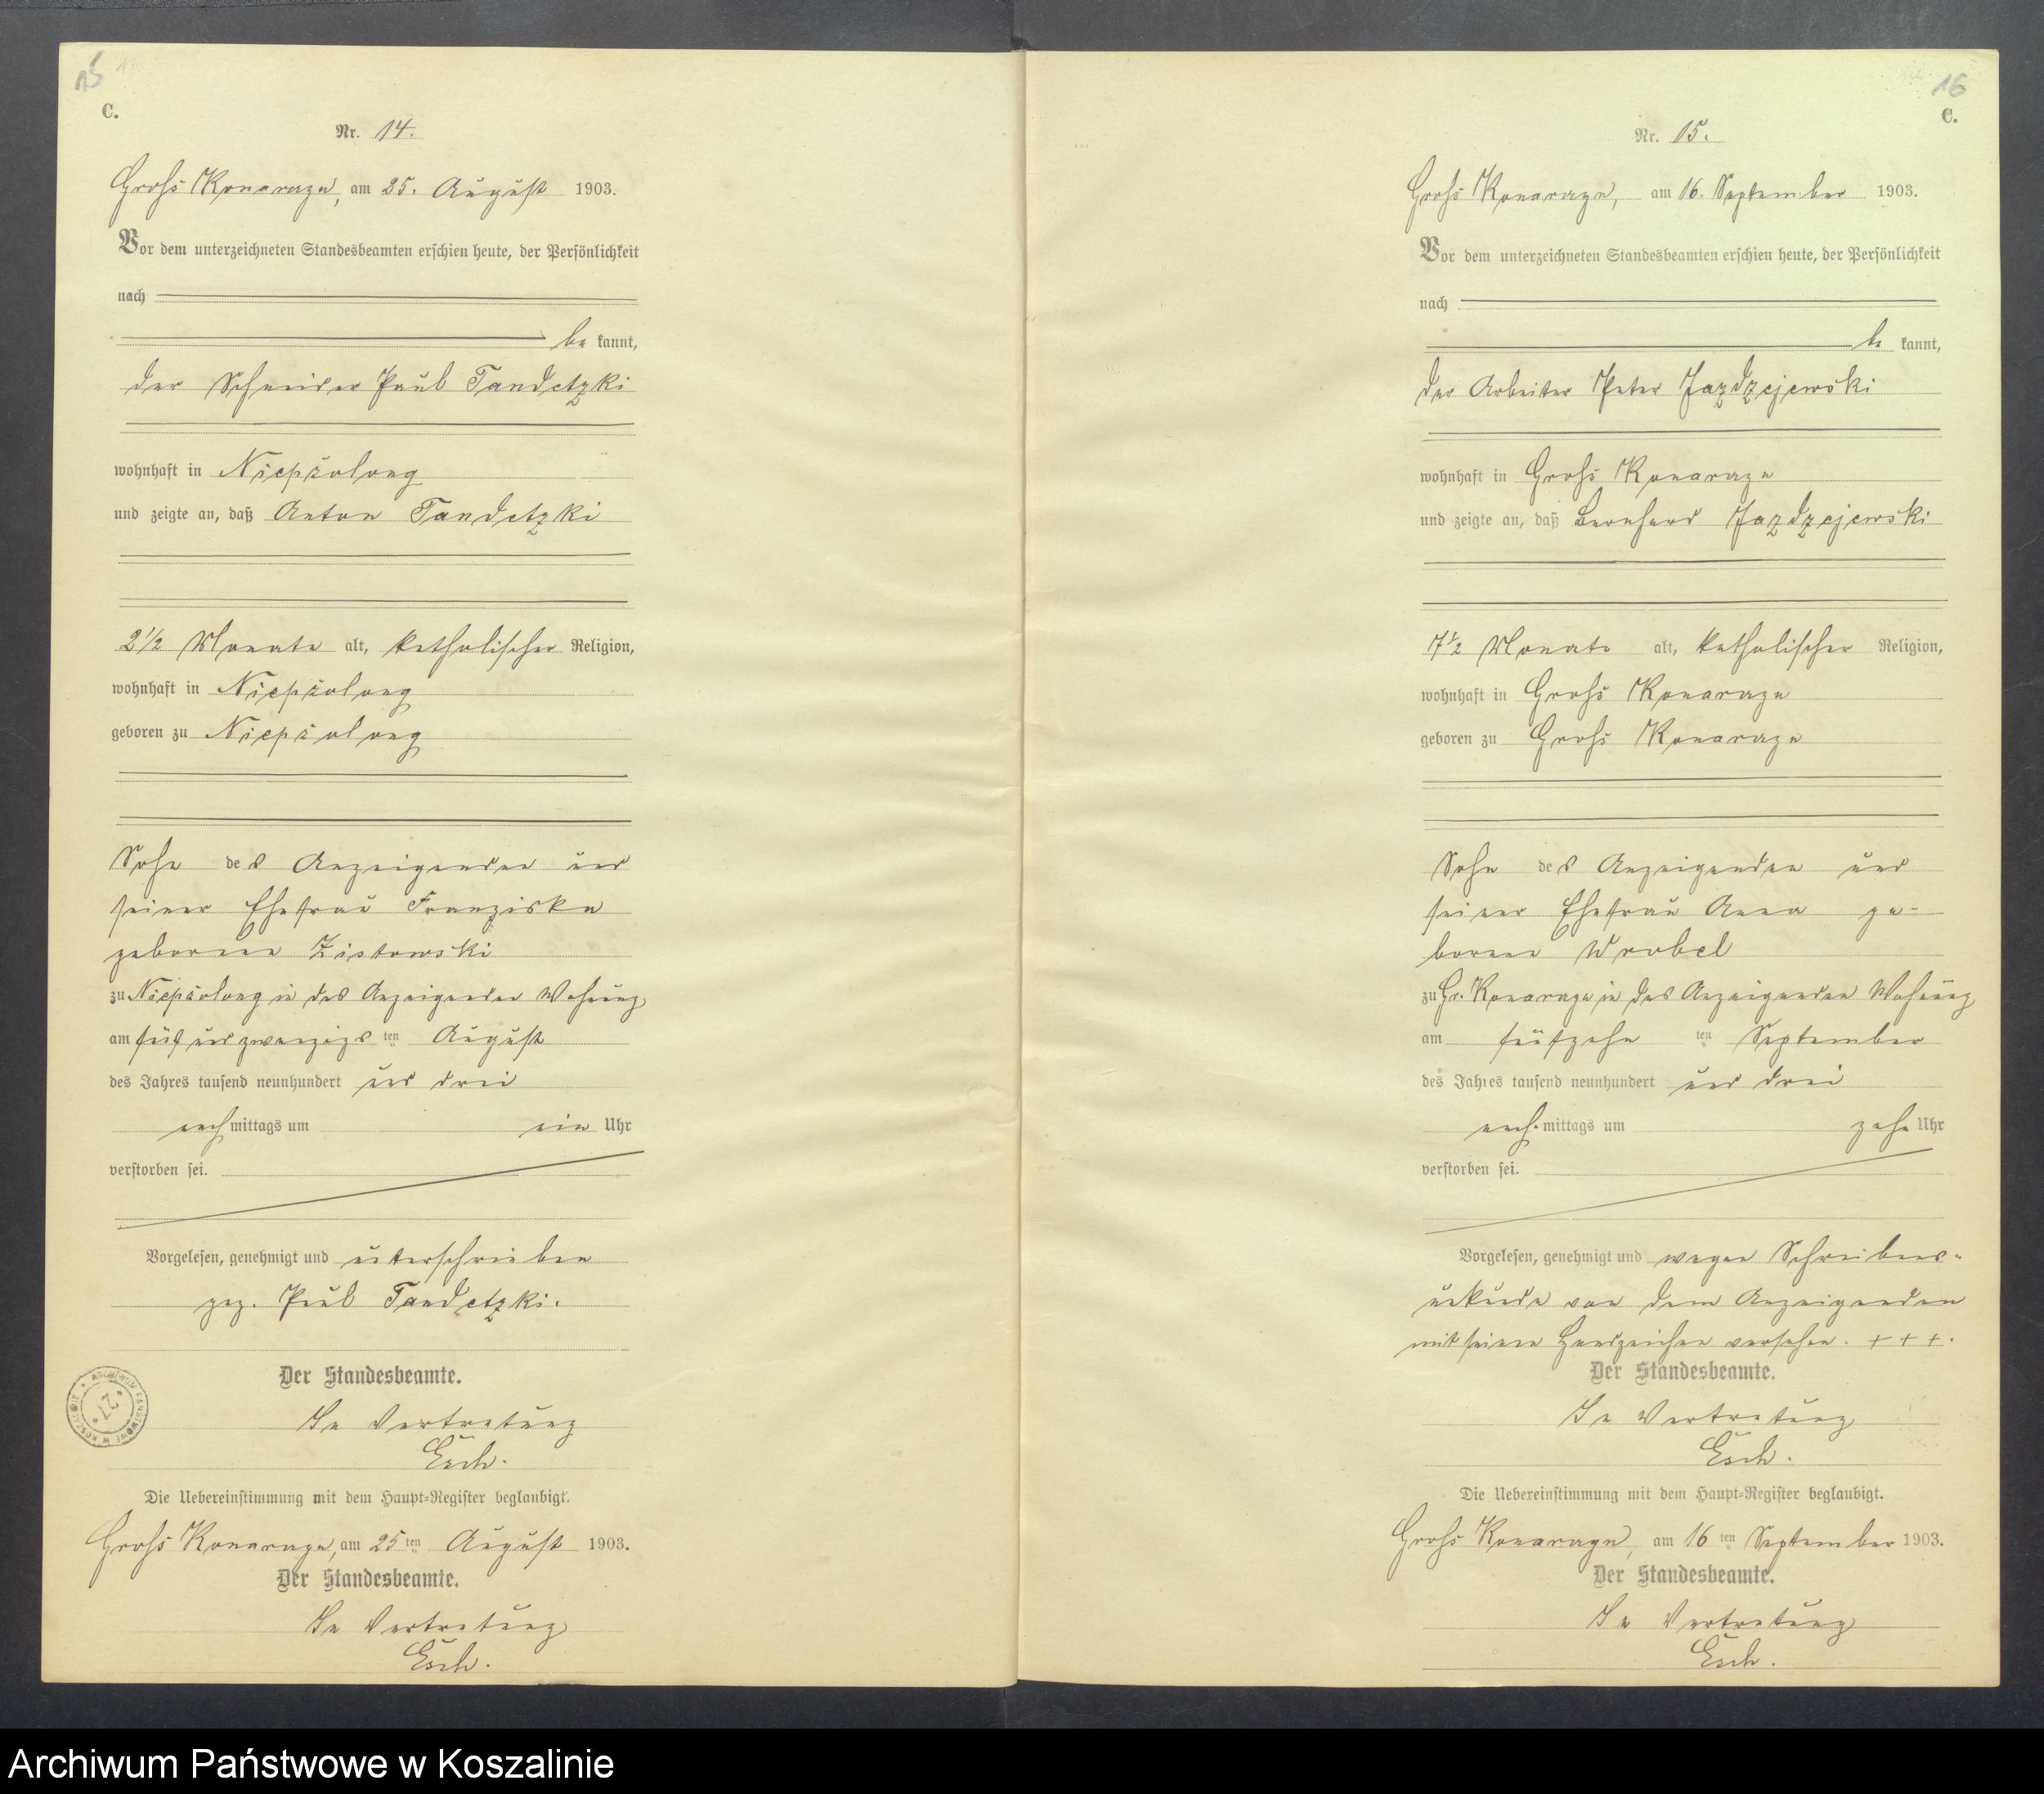 15
C.
Nr. 14.
Groß Konarzyn, am 25. August 1903.
Vor dem unterzeichneten Standesbeamten erschien heute, der Persönlichkeit
nach
be kannt,
der Schneider Paul Tandetzki
wohnhaft in Niepszolong
und zeigte an, daß Anton Tandetzki
2 1/2 Monate alt, katholischer Religion,
wohnhaft in Niepszolong
geboren zu Niepszolong
Sohn des Anzeigenden und
seiner Ehefrau Franziska
geborenen Zistowski
zu Niepszolong in des Anzeigenden Wohnung
am fünf und zwanzigs ten August
des Jahres tausend neunhundert und drei
nach mittags um ein Uhr
verstorben sei.
Vorgelesen, genehmigt und unterschrieben
gez. Paul Tandetzki.
Der Standesbeamte.
In Vertretung
Esch.
Die Uebereinstimmung mit dem Haupt-Register beglaubigt.
Groß Konarzyn, am 25 ten August 1903.
Der Standesbeamte.
In Vertretung
Esch.
16
C.
Nr. 15.
Groß Konarzyn, am 16. September 1903.
Vor dem unterzeichneten Standesbeamten erschien heute, der Persönlichkeit
nach
be kannt,
der Arbeiter Peter Jazdzejewski
wohnhaft in Groß Konarzyn
und zeigte an, daß Bernhard Jazdzejewski
7 1/2 Monate alt, katholischer Religion,
wohnhaft in Groß Konarzyn
geboren zu Groß Konarzyn
Sohn des Anzeigenden und
seiner Ehefrau Anna ge-
borenen Wrobel
zu Gr. Konarzyn in des Anzeigenden Wohnung
am fünfzehn ten September
des Jahres tausend neunhundert und drei
nach mittags um zehn Uhr
verstorben sei.
Vorgelesen, genehmigt und wegen Schreibens-
unkunde von dem Anzeigenden
mit seinem Handzeichen versehen. + + +.
Der Standesbeamte.
In Vertretung
Esch.
Die Uebereinstimmung mit dem Haupt-Register beglaubigt.
Groß Konarzyn, am 16 ten September 1903.
Der Standesbeamte.
In Vertretung
Esch.
ARCHIWUM PAŃSTWOWE W KOSZALINIE
27
Archiwum Państwowe w Koszalinie